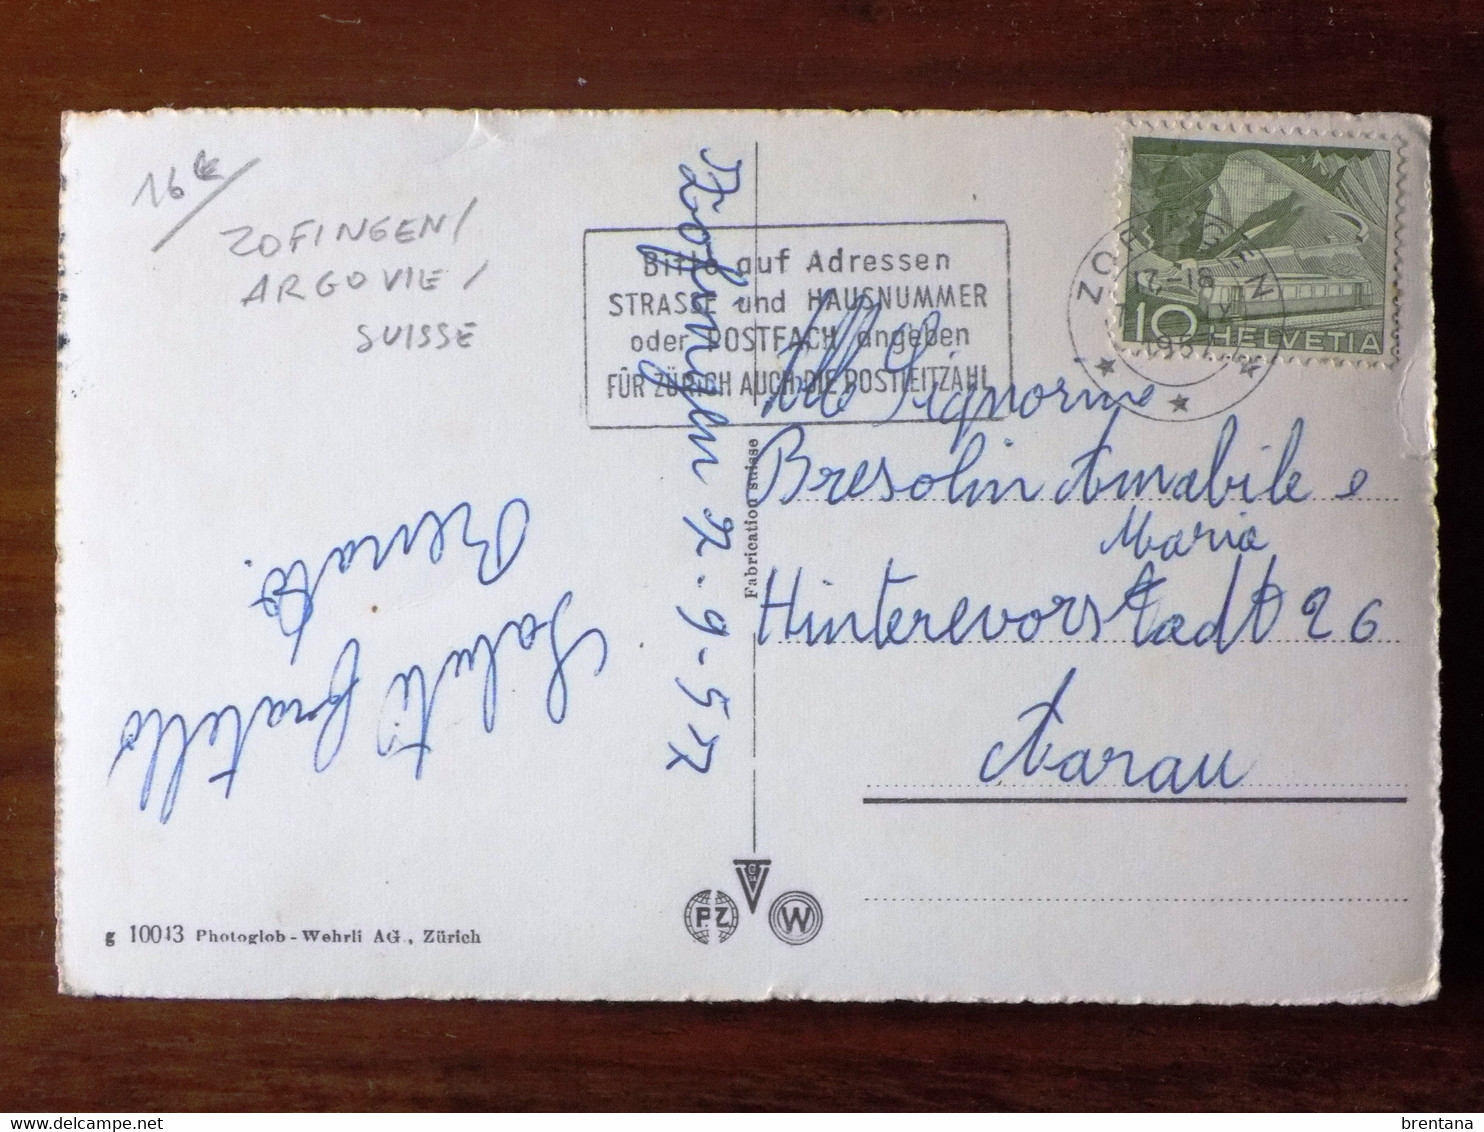 16 €
ZOFINGEN /
ARGOVIE /
SUISSE
Zofingen 12.9-57
Saluti fratello
Renato.
Bitte auf Adressen
STRASSE und HAUSNUMMER
oder POSTFACH angeben
FÜR ZÜRICH AUCH DIE POSTLEITZAHL
ZOFINGEN
17-18
1957
10 HELVETIA
Alle Signorine
Bresolin Amabile e
Maria
Hinterevorstadt 26
Aarau
Fabrication suisse
PZ
W
g 10043 Photoglob-Wehrli AG., Zürich
brentana